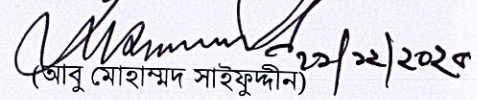 ২২/১২/২০২৫
(আবু মোহাম্মদ সাইফুদ্দীন)